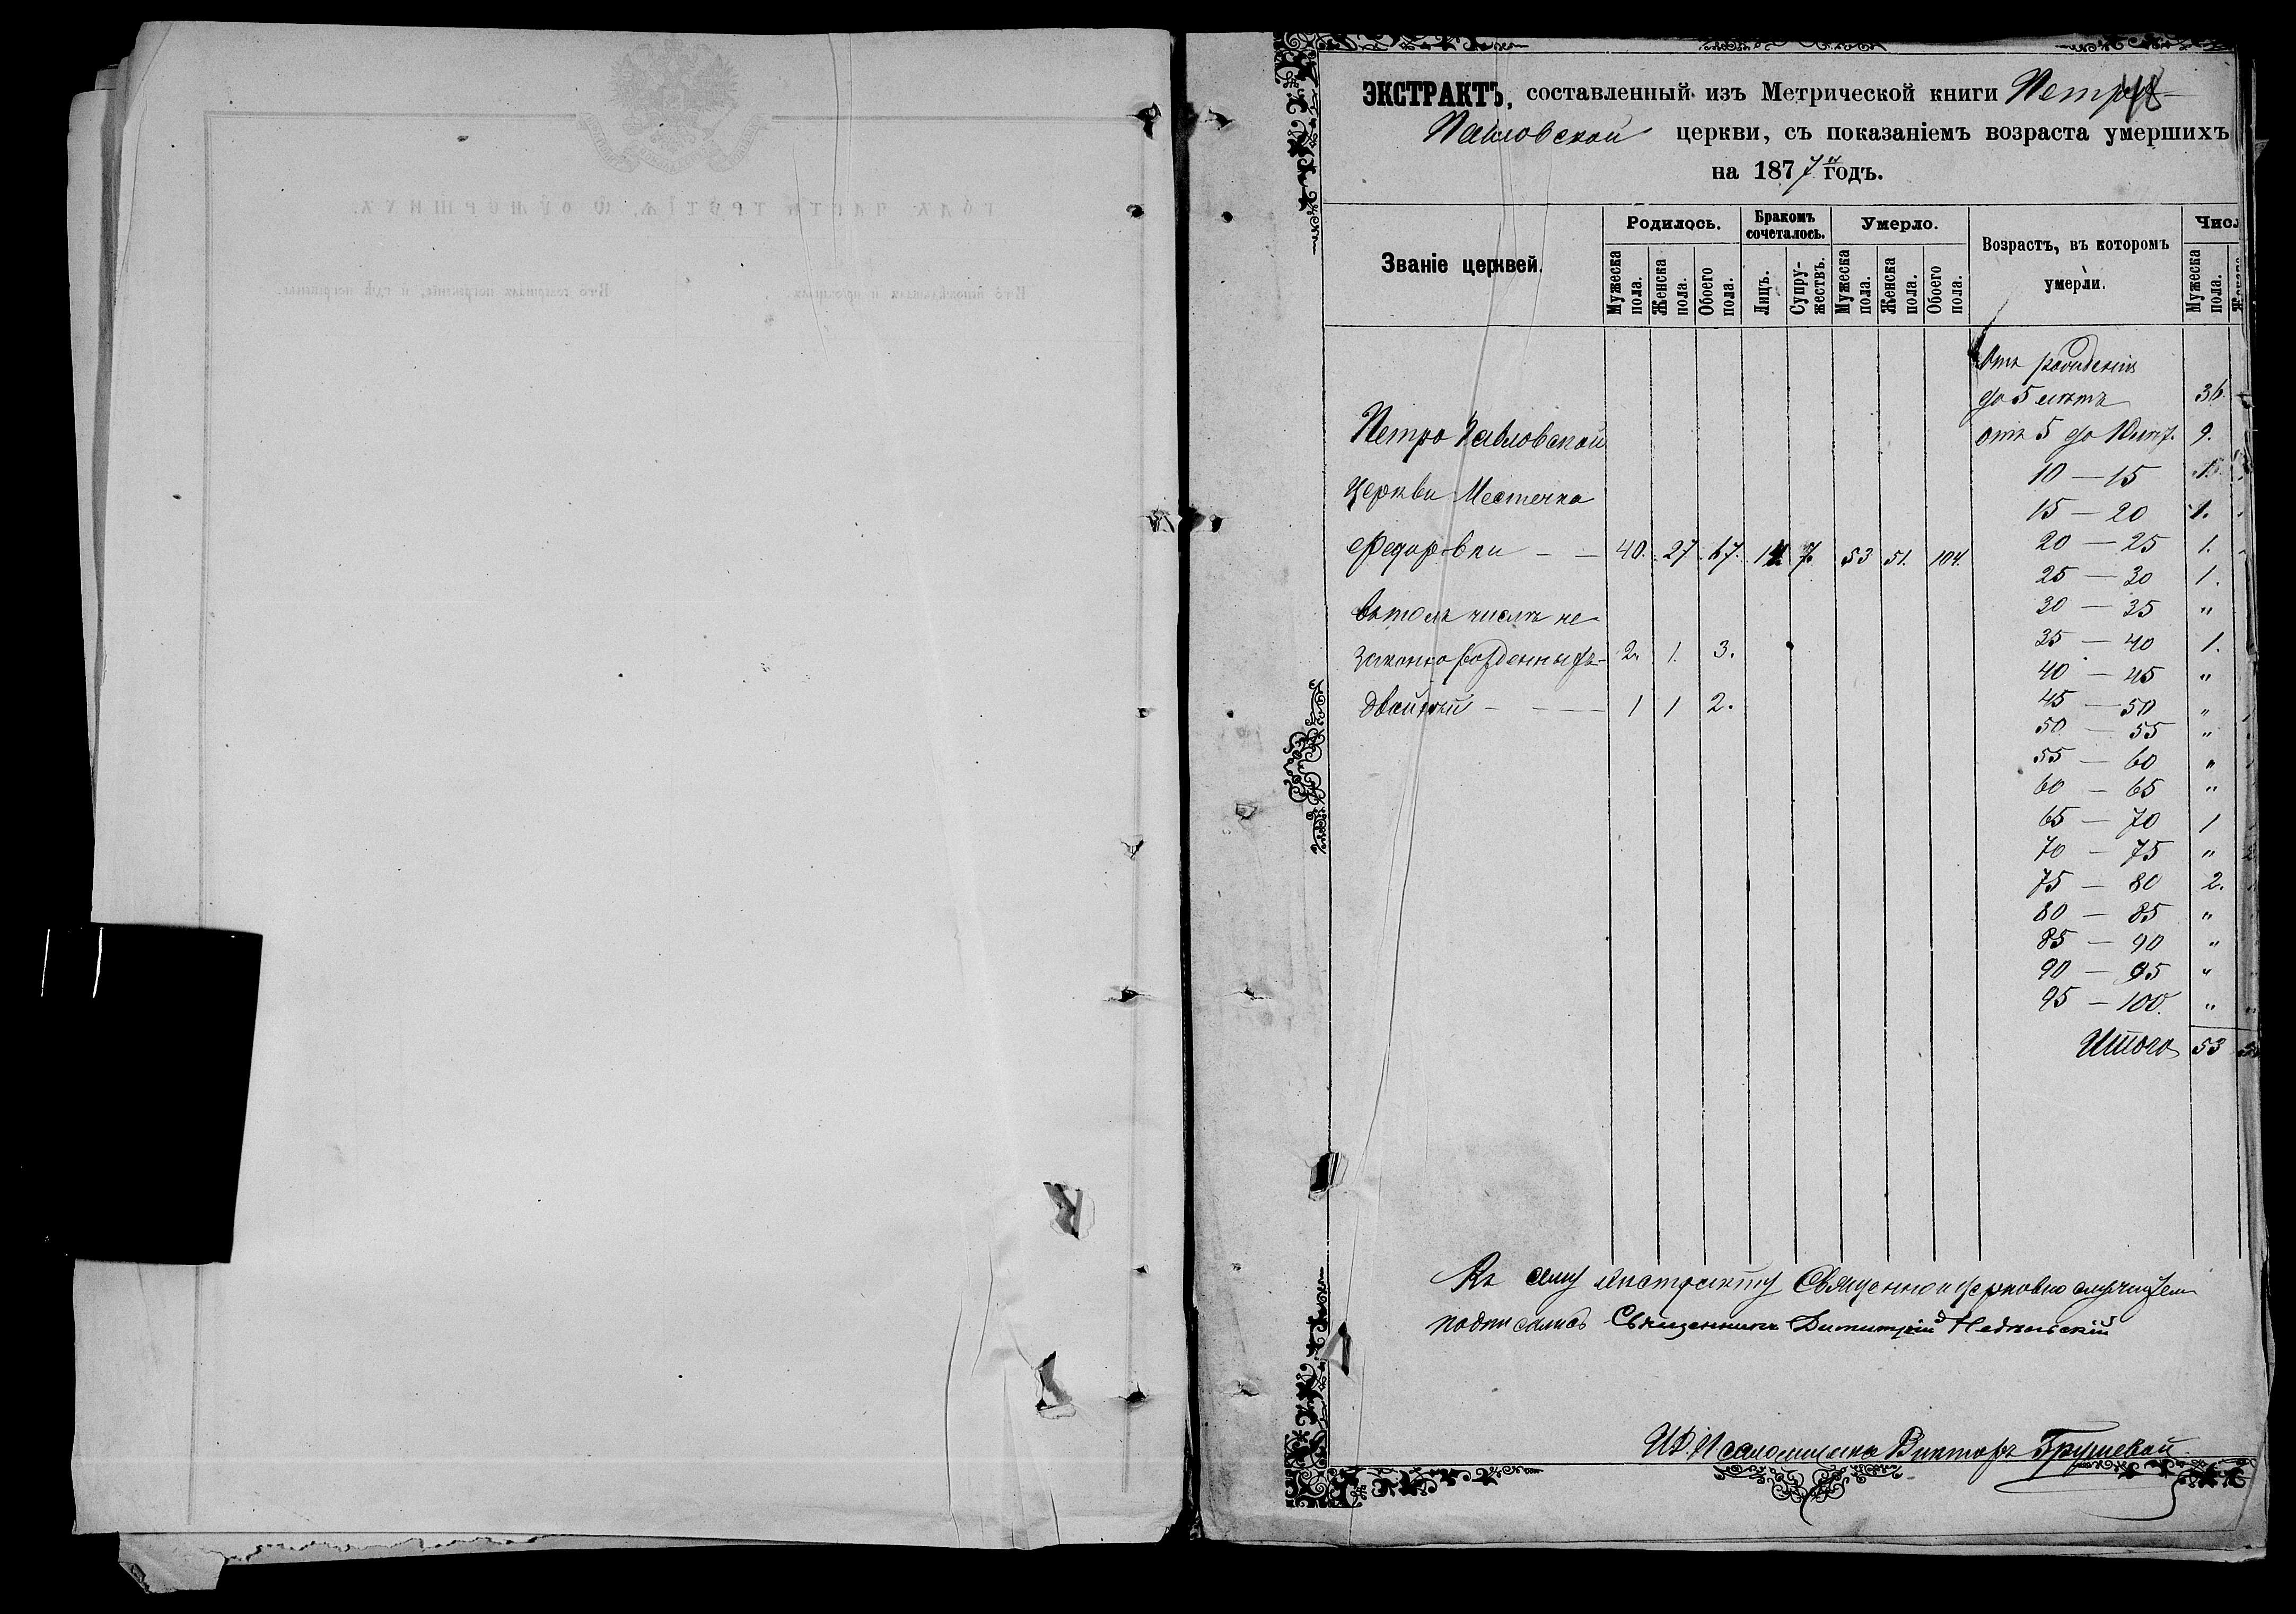 ЭКСТРАКТЪ, составленный изъ Метрической книги Петро-
Павловской церкви, съ показаніемъ возраста умершихъ
на 1877й годъ.
Званіе церквей.
Родилось.
Бракомъ сочеталось.
Умерло.
Возрастъ, въ которомъ умерли.
Числ
Мужеска пола.
Женска пола.
Обоего пола.
Лицъ.
Супружествъ.
Мужеска пола.
Женска пола.
Обоего пола.
Мужеска пола.
Отъ рожденія
до 5 лѣтъ 36.
Петро Павловской
отъ 5 до 10 лѣт. 9.
10 — 15 1.
Церкви Местечка
15 — 20 1.
Федоровки — — 40. 27. 67. 14 7. 53 51. 104.
20 — 25 1.
25 — 30 1.
Вътомъ числѣ не
30 — 35 "
35 — 40 1.
законнорожденныхъ — 2. 1. 3.
40 — 45 "
двойней — — — 1 1 2.
45 — 50 "
50 — 55 "
55 — 60 "
60 — 65 "
65 — 70 1
70 — 75 "
75 — 80 2.
80 — 85 "
85 — 90 "
90 — 95 "
95 — 100. "
Итого 53
Къ сему Экстракту Священно и церковно служители
подписались Священникъ Димитрій
И.Д. Псаломщика Викторъ Грушевой